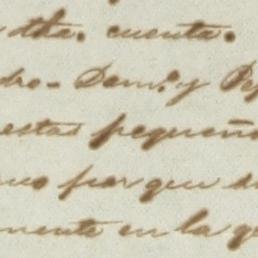 dha. cuenta.
dro - Dom.º y Pe
estas pequeñ
mo por que d
mente en la q